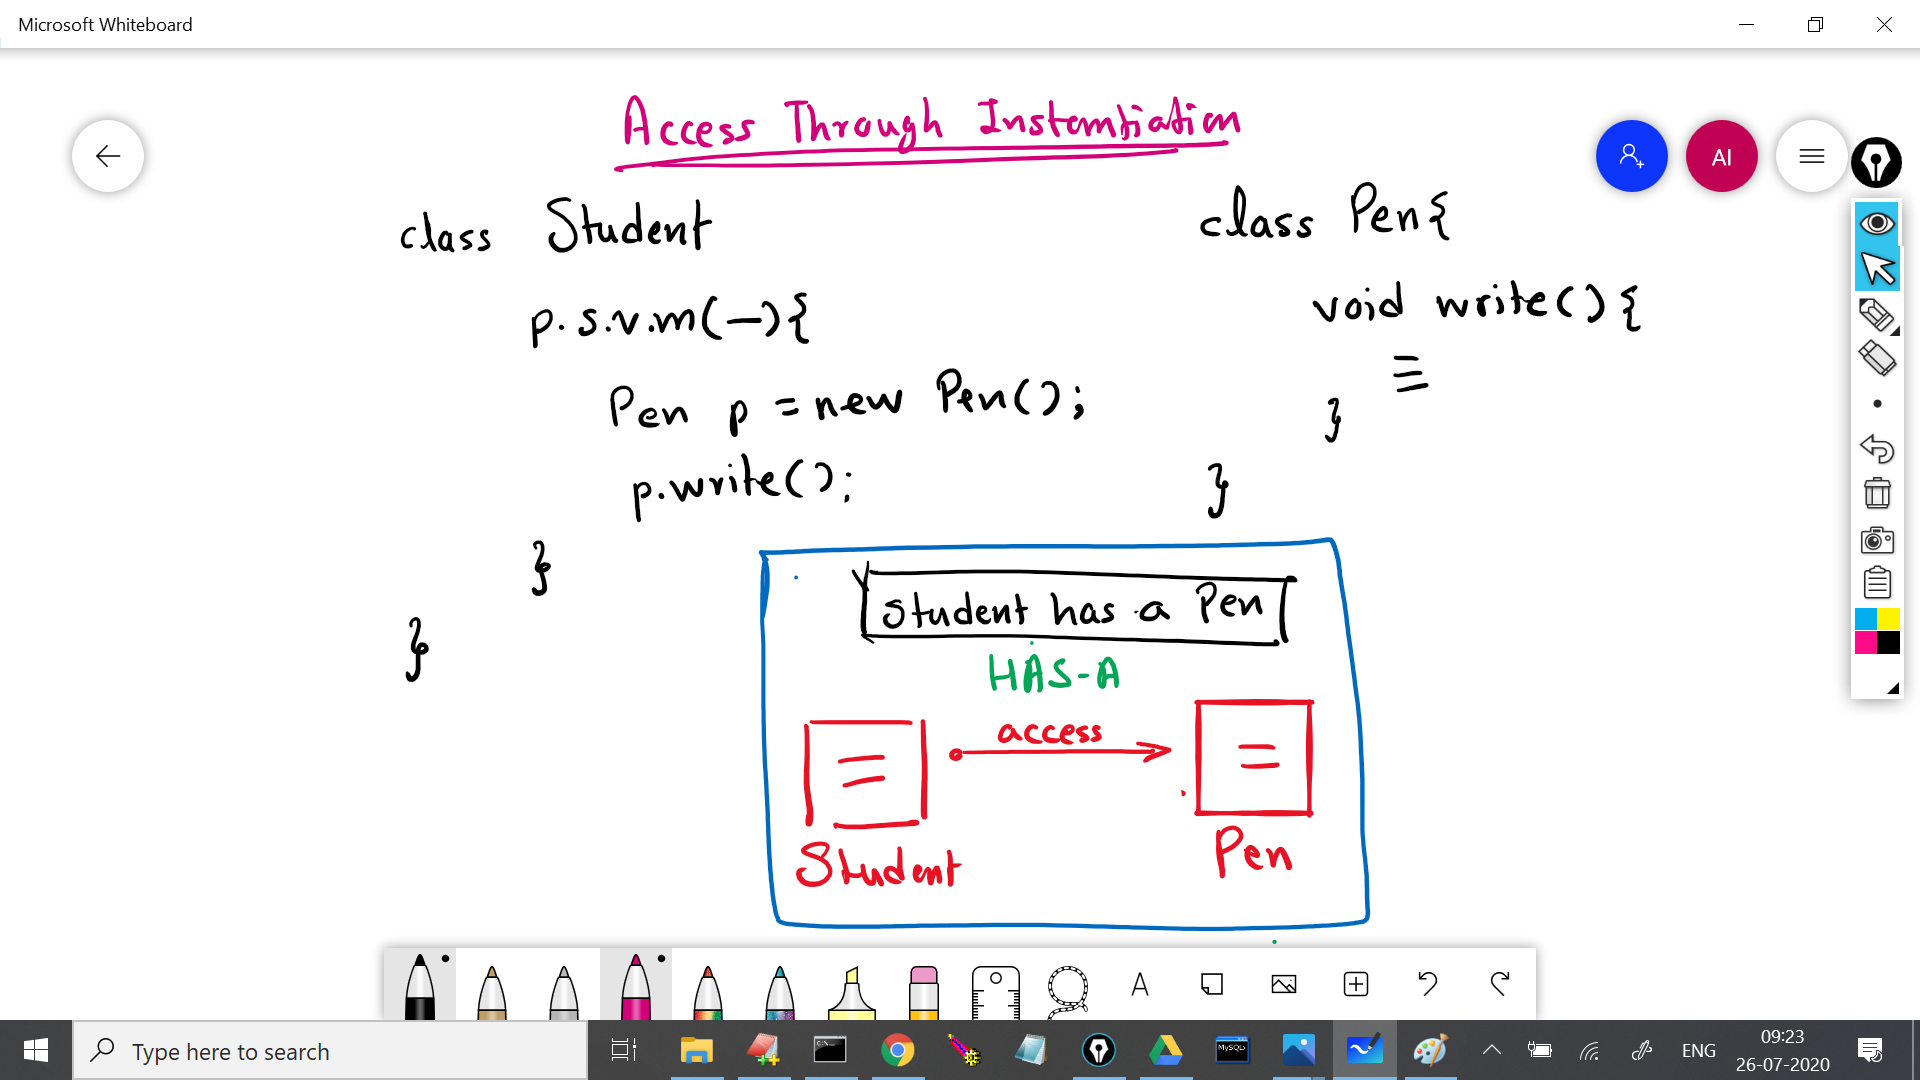 Microsoft Whiteboard
Access Through Instantiation
AI
class Student
p.s.v.m(—){
Pen p = new Pen();
p.write();
}
}
class Pen{
void write(){
}
}
Student has a Pen
HAS-A
access
Student
Pen
A
Type here to search
MySQL
ENG
09:23
26-07-2020